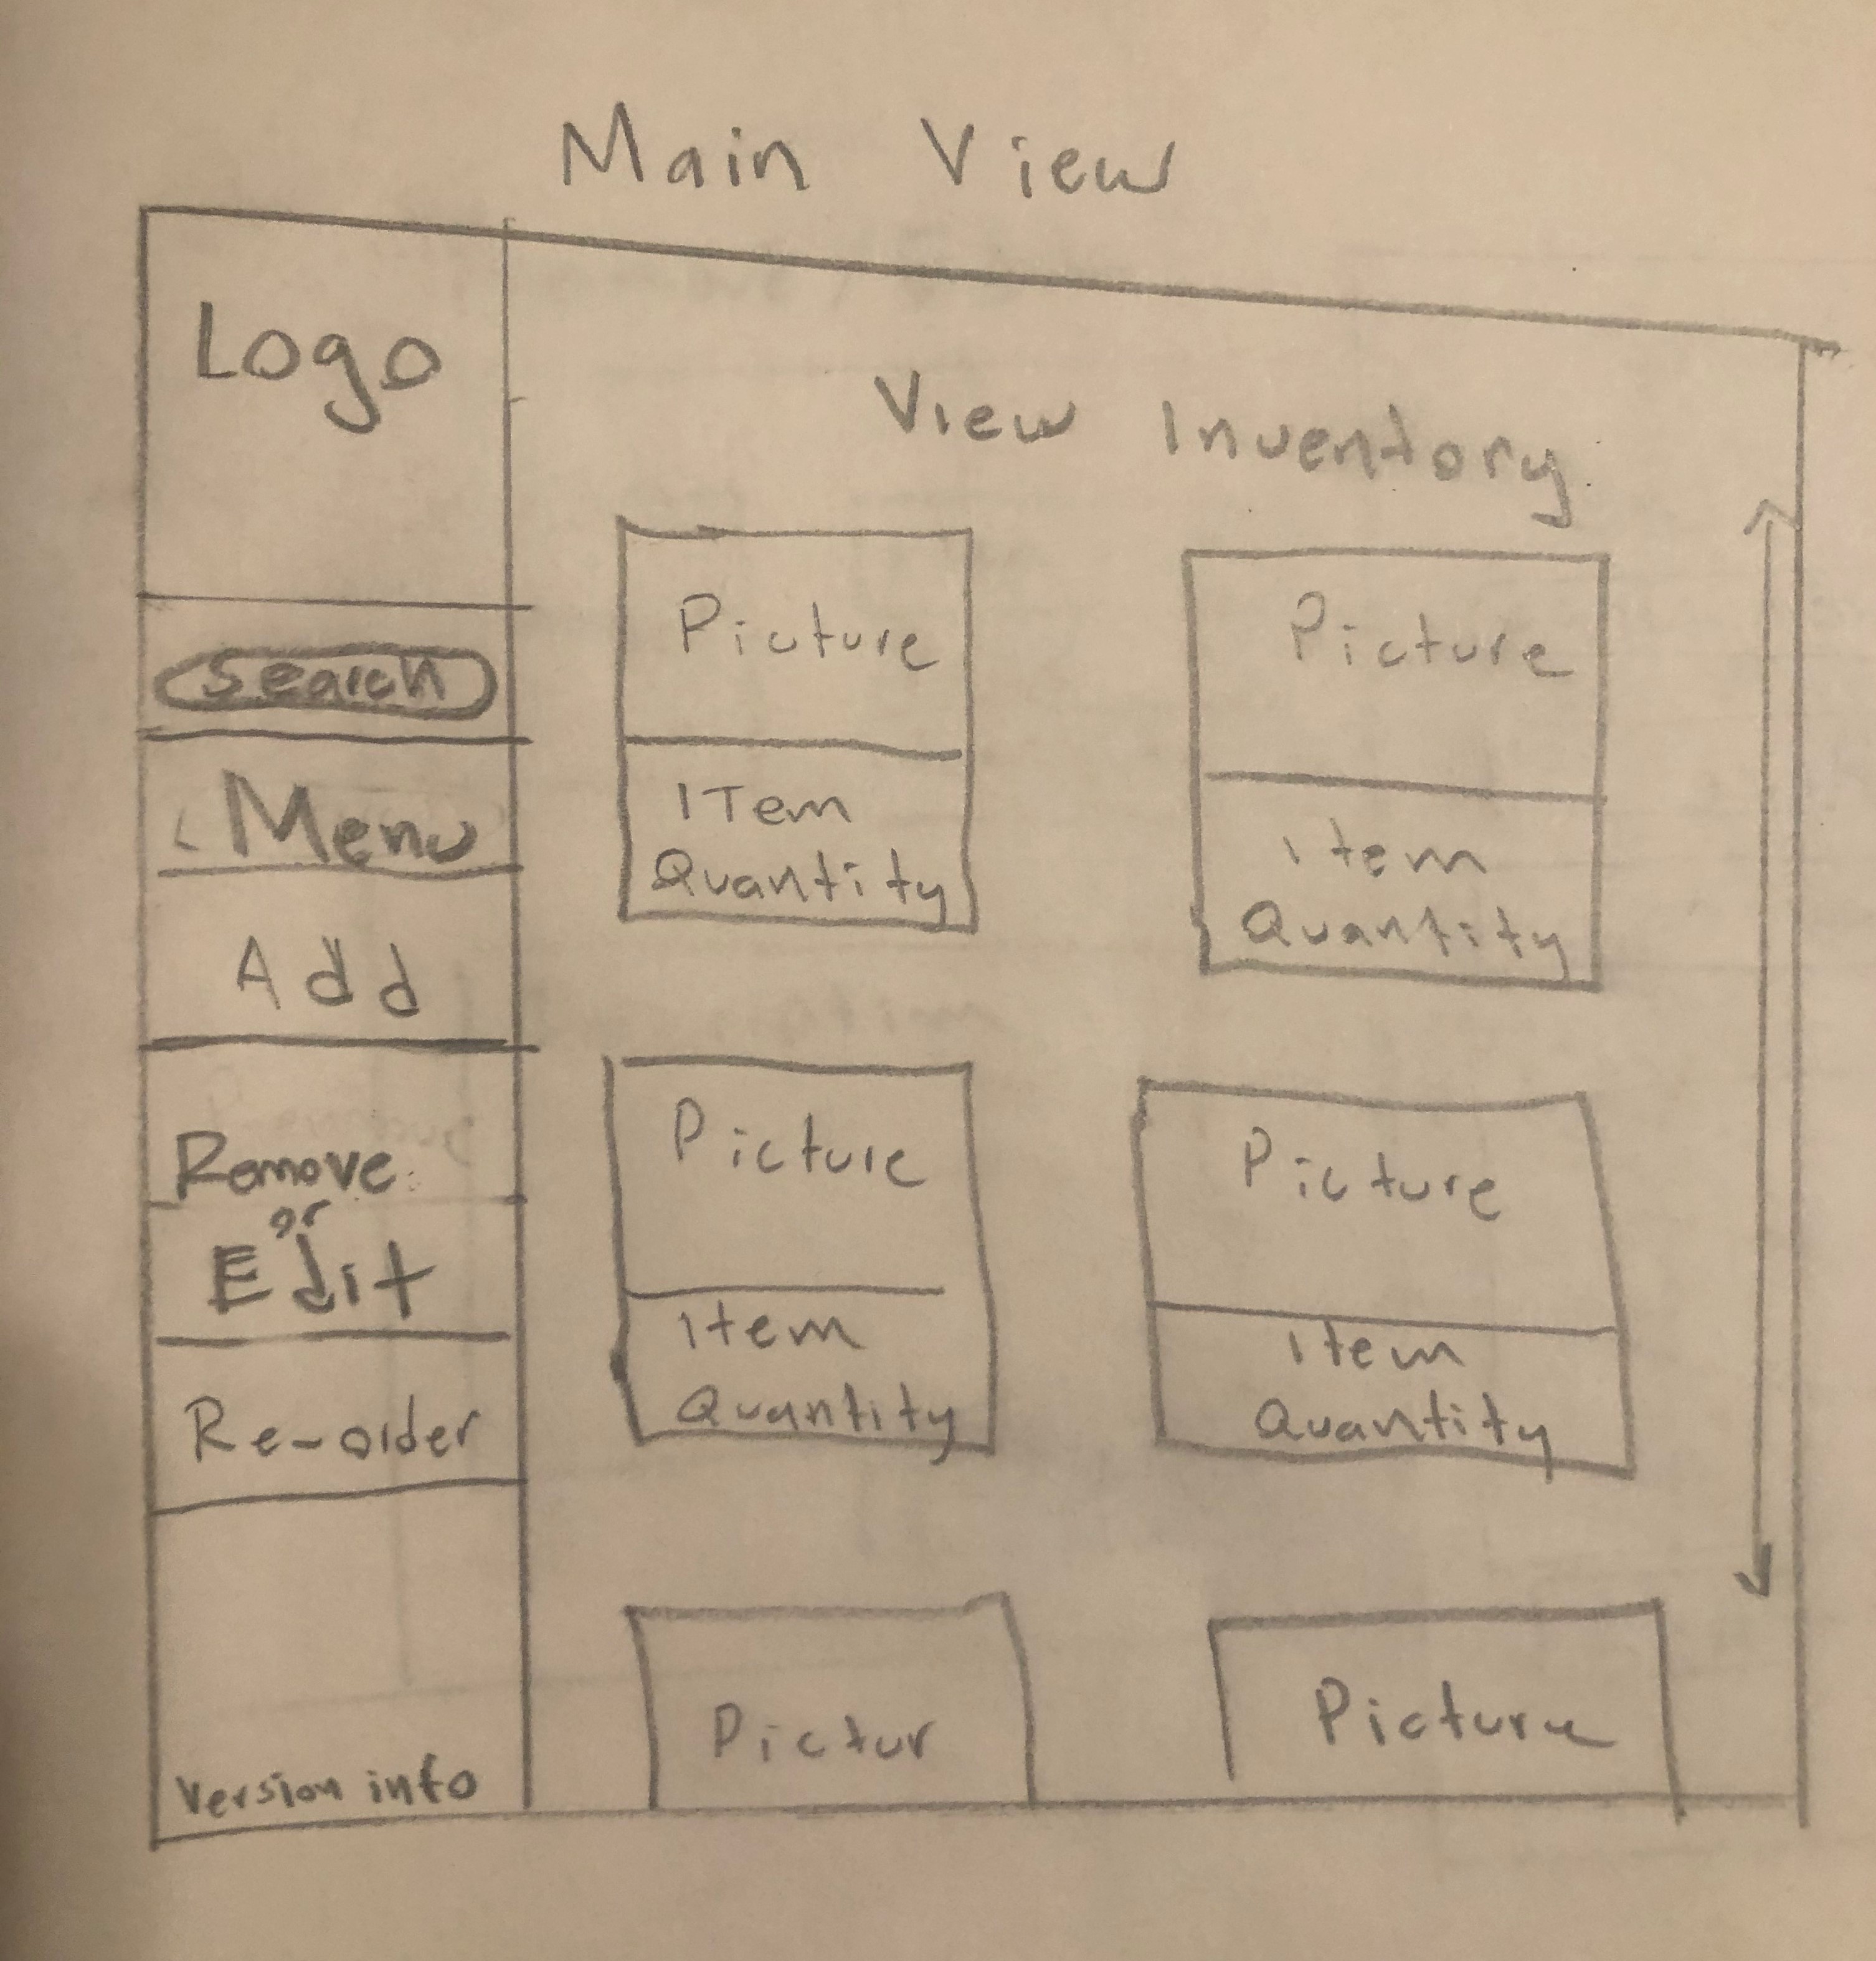 Main View
Logo
Search
Menu
Add
Remove
or
Edit
Re-order
Version info
View Inventory
Picture
ITem
Quantity
Picture
item
Quantity
Picture
item
Quantity
Picture
item
Quantity
Pictur
Picture